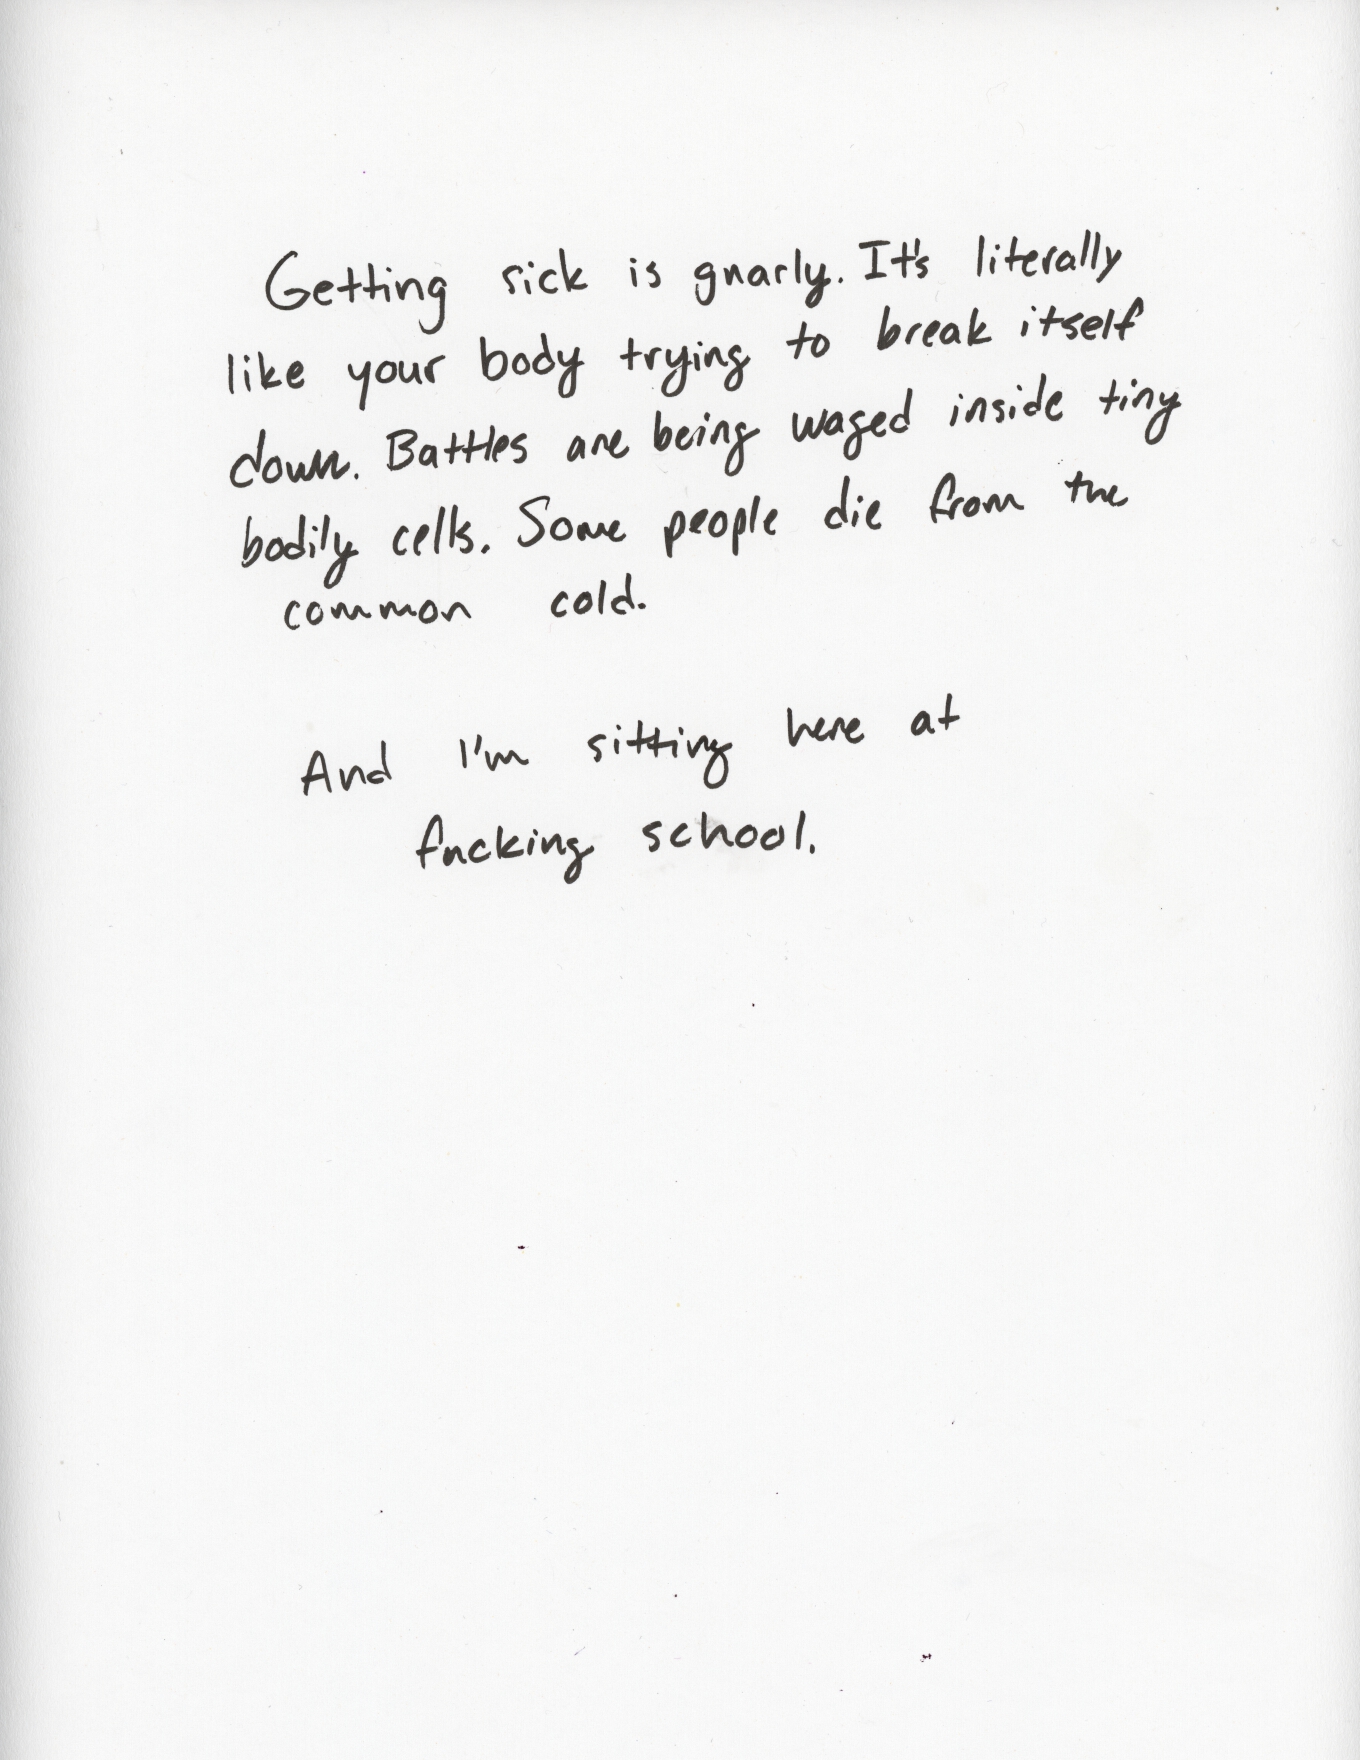 Getting sick is gnarly. It's literally
like your body trying to break itself
down. Battles are being waged inside tiny
bodily cells. Some people die from the
common cold.
And I'm sitting here at
fucking school.